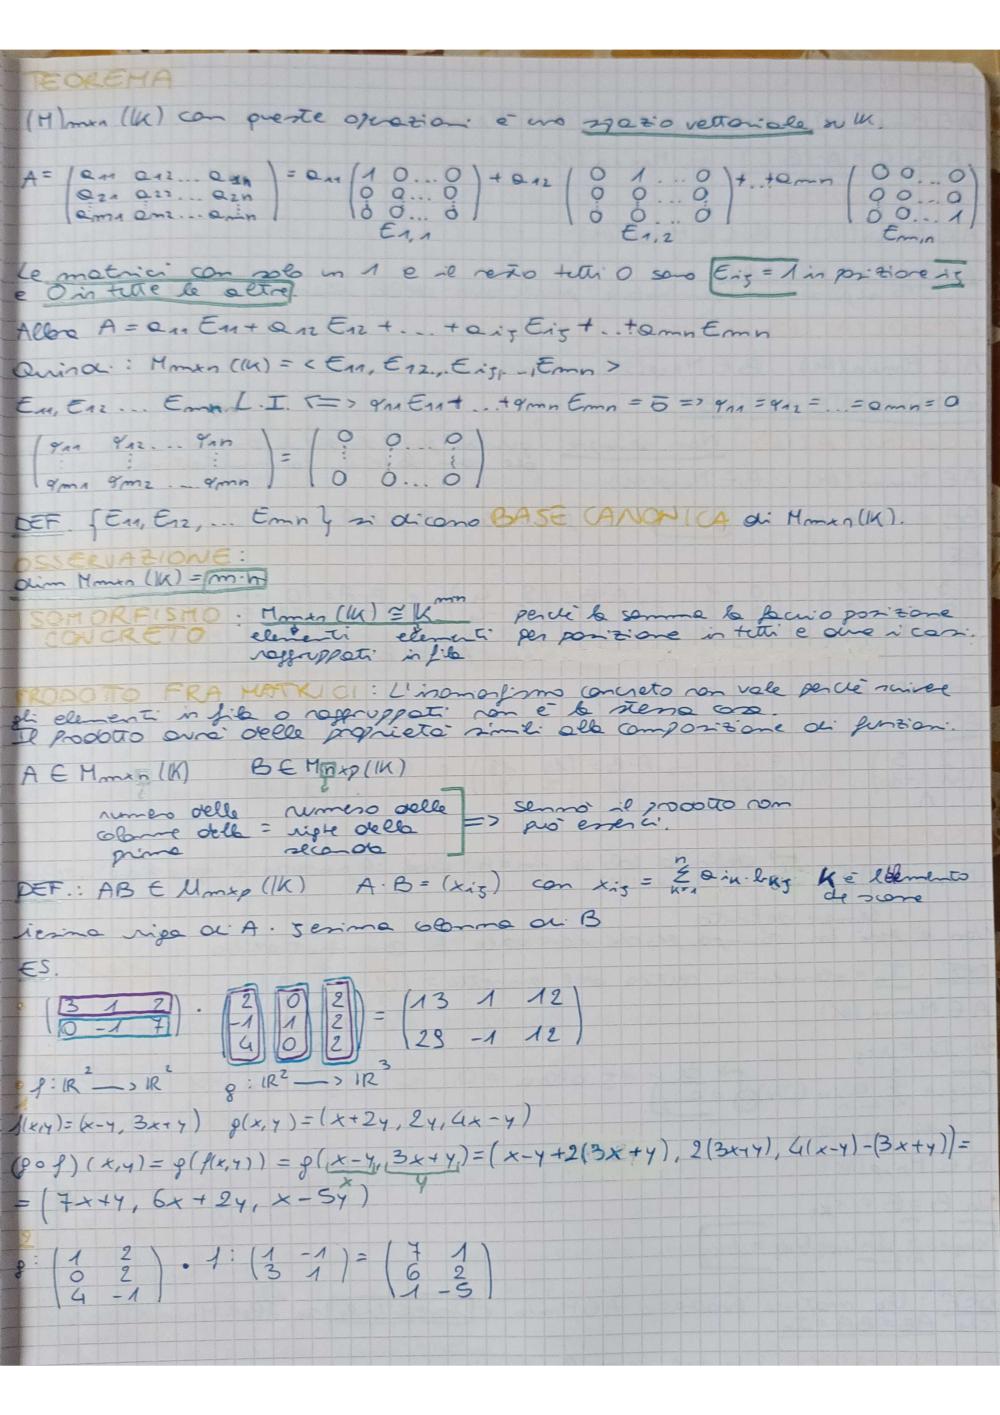 TEOREMA
(M)m×n (K) con queste operazioni è uno spazio vettoriale su K.
A = (a11 a12 ... a1n = a11 (1 0 ... 0 + a12 (0 1 ... 0 + ..+ amn (0 0 ... 0
a21 a22 ... a2n 0 0 ... 0 0 0 ... 0 0 0 ... 0
am1 am2 ... amn) 0 0 ... 0) 0 0 ... 0) 0 0 ... 1)
E1,1 E1,2 Em,n
Le matrici con solo un 1 e il resto tutti 0 sono Eij = 1 in posizione ij
e 0 in tutte le altre.
Allora A = a11 E11 + a12 E12 + ... + aij Eij + ..+ amn Emn
Quindi : Mm×n (K) = < E11, E12,.., Eij, .., Emn >
E11, E12 ... Emn L.I. <=> α11 E11 + ..+ αmn Emn = 0 => α11 = α12 = ... = αmn = 0
(α11 α12 ... α1n = (0 0 ... 0
αm1 αm2 ... αmn) 0 0 ... 0)
DEF. {E11, E12, ... Emn} si dicono BASE CANONICA di Mm×n (K).
OSSERVAZIONE :
dim Mm×n (K) = m·n
ISOMORFISMO : Mm×n (K) ≅ K^mn perché la somma la faccio posizione
CONCRETO elementi elementi per posizione in tutti e due i casi.
raggruppati in fila
PRODOTTO FRA MATRICI : L'isomorfismo concreto non vale perché scrivere
gli elementi in fila o raggruppati non è la stessa cosa.
Il prodotto avrà delle proprietà simili alla composizione di funzioni.
A ∈ Mm×n (K) B ∈ Mn×p (K)
numero delle numero delle => sennò il prodotto non
colonne della = righe della può esserci.
prima seconda
DEF.: AB ∈ Mm×p (K) A·B = (xij) con xij = Σ(k=1, n) aik · bkj K è l'elemento
che scorre
iesima riga di A · jesima colonna di B
ES.
(3 1 2 · (2 0 2 = (13 1 12
0 -1 7) -1 1 2 29 -1 12)
4 0 2)
f : R² → R² g : R² → R³
f(x,y) = (x-y, 3x+y) g(x,y) = (x+2y, 2y, 4x-y)
(g∘f) (x,y) = g(f(x,y)) = g(x-y, 3x+y) = (x-y+2(3x+y), 2(3x+y), 4(x-y)-(3x+y)) =
x y
= (7x+y, 6x+2y, x-5y)
2
g : (1 2 · f : (1 -1 = (7 1
0 2 3 1) 6 2
4 -1) 1 -5)